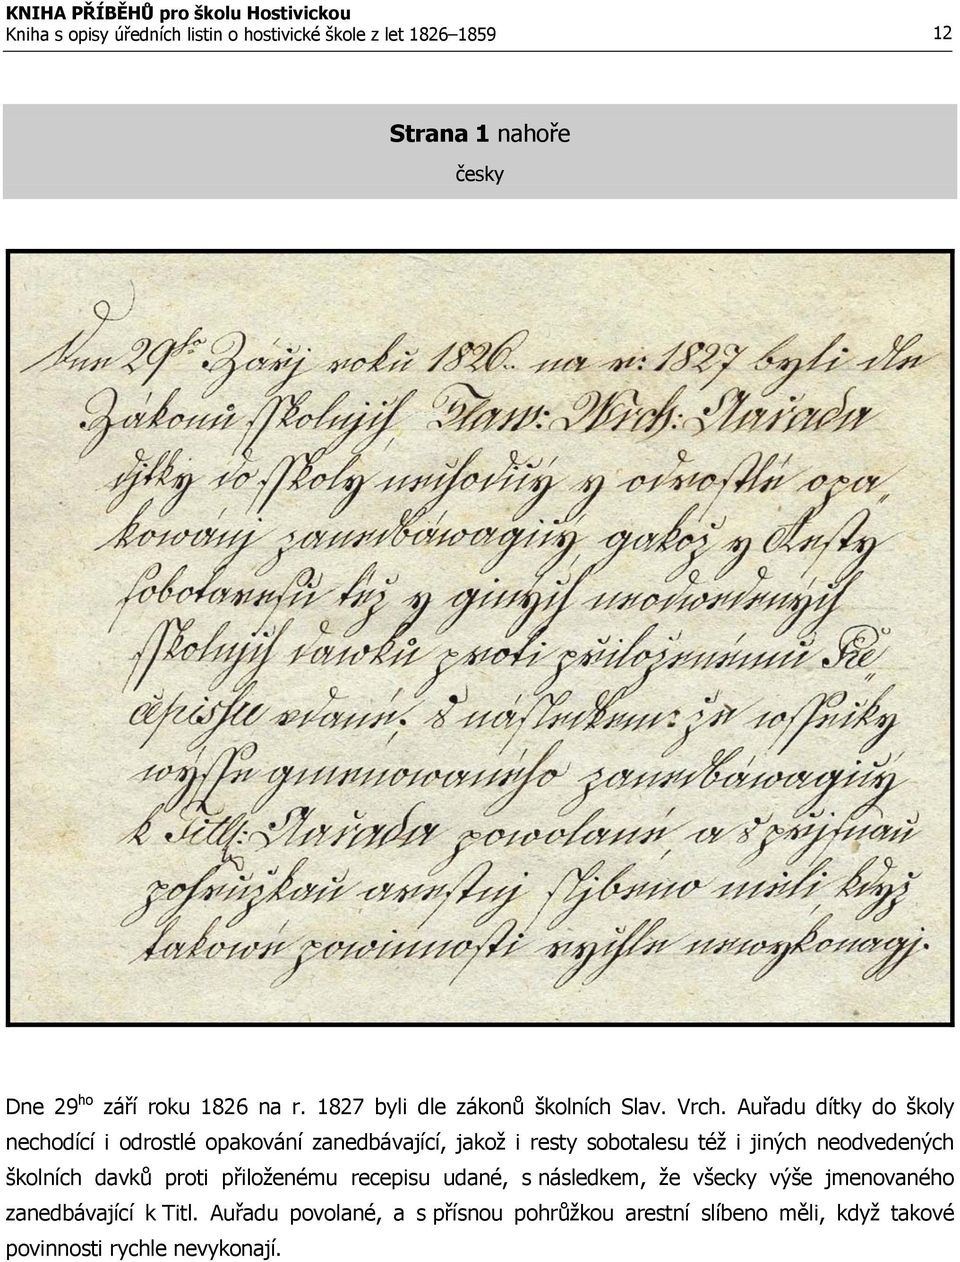 KNIHA PŘÍBĚHŮ pro školu Hostivickou
Kniha s opisy úředních listin o hostivické škole z let 1826–1859 12
Strana 1 nahoře
česky
Dne 29ho Zářj roku 1826.. na r: 1827 byli dle
Zákonů sskolnjch Slaw: Wrch: Auřadu
djtky do sskoly nechodicý y odrostlé opa„
kowánj zanedbáwagicý, gakož y Resty
sobotaresu též y giných neodwedených
sskolnjch dawků proti přiloženému Re„
cepishu udané; s následkem: že wssecky
wýsse gmenowaného zanedbáwagicý
k Titl: Auřadu powolané, a s přjsnau
pohružkau arestnj sljbeno měli, když
takowé powinnosti rychle newykonagj.
Dne 29ho září roku 1826 na r. 1827 byli dle zákonů školních Slav. Vrch. Auřadu dítky do školy
nechodící i odrostlé opakování zanedbávající, jakož i resty sobotalesu též i jiných neodvedených
školních davků proti přiloženému recepisu udané, s následkem, že všecky výše jmenovaného
zanedbávající k Titl. Auřadu povolané, a s přísnou pohrůžkou arestní slíbeno měli, když takové
povinnosti rychle nevykonají.